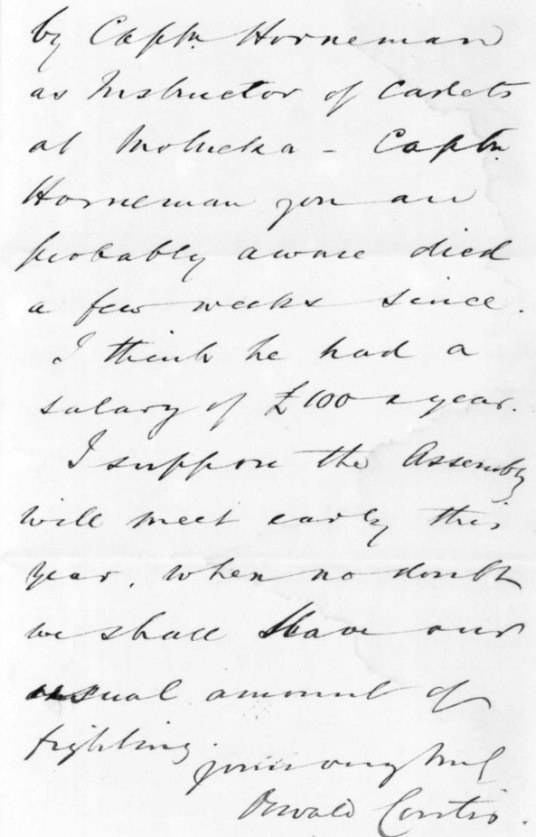 by Captn. Horneman
as Instructor of Cadets
at Motueka - Captn.
Horneman you are
probably aware died
a few weeks since.
I think he had a
salary of £100 a year.
I suppose the Assembly
will meet early this
year, when no doubt
we shall have our
usual amount of
fighting.
yours very truly
Oswald Curtis.